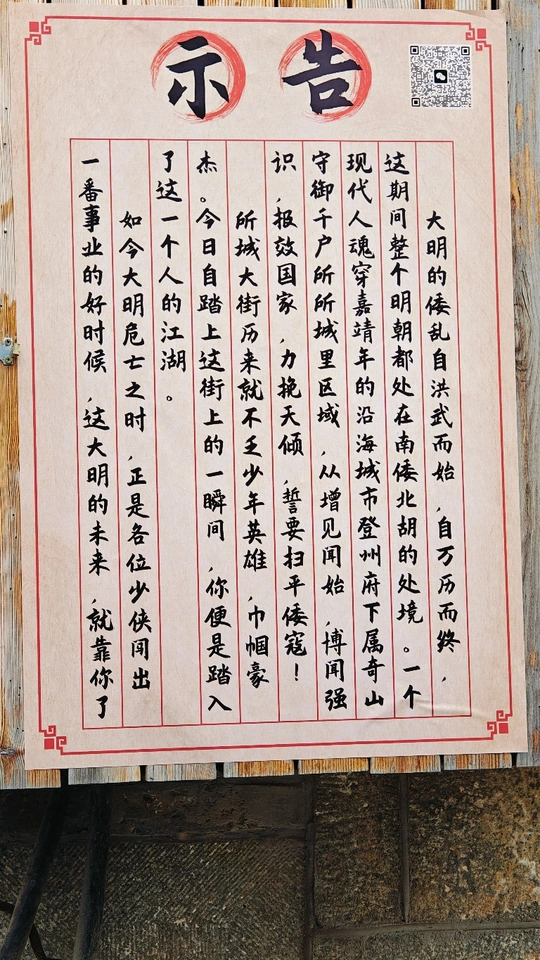 告示
大明的倭乱自洪武而始，自万历而终，
这期间整个明朝都处在南倭北胡的处境。一个
现代人魂穿嘉靖年的沿海城市登州府下属奇山
守御千户所所城里区域，从增见闻始，博闻强
识，报效国家，力挽天倾，誓要扫平倭寇！
所城大街历来就不乏少年英雄，巾帼豪
杰。今日自踏上这街上的一瞬间，你便是踏入
了这一个人的江湖。
如今大明危亡之时，正是各位少侠闯出
一番事业的好时候，这大明的未来，就靠你了